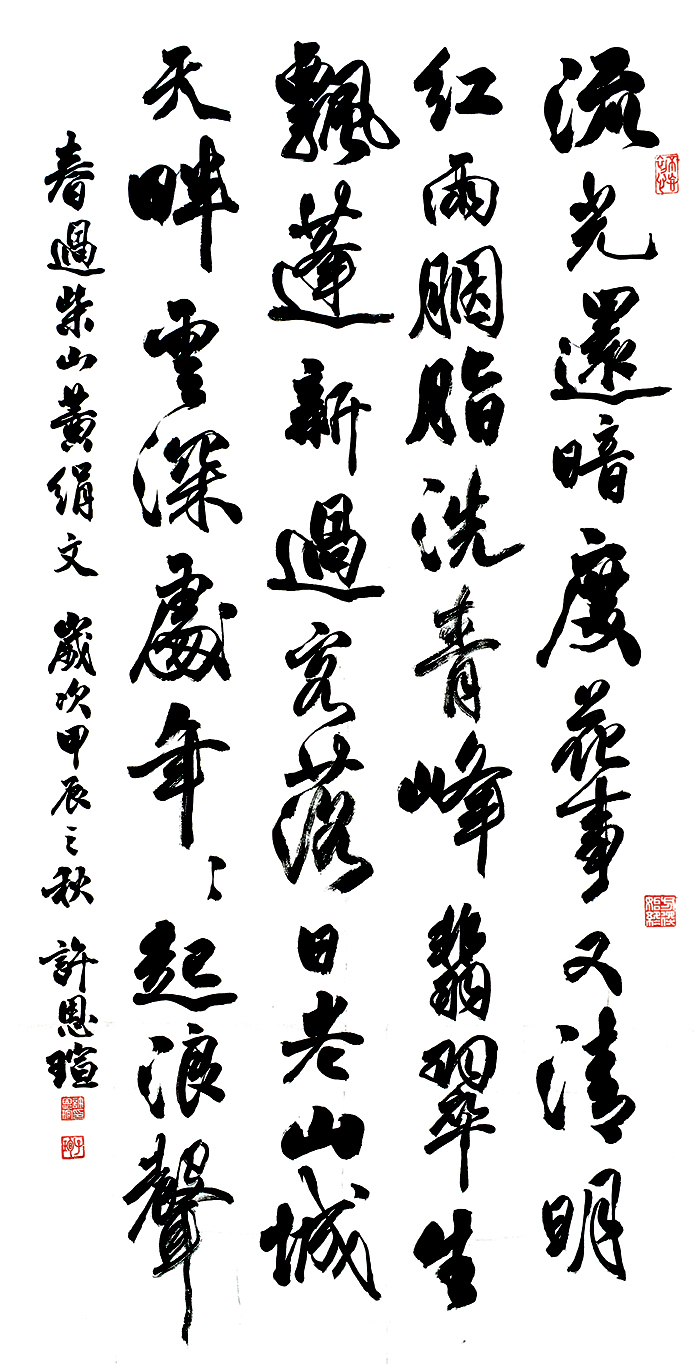 流光還暗度花事又清明
紅雨胭脂洗青峰翡翠生
飄蓬新過客落日老山城
天畔雲深處年〻起浪聲
春過柴山黃絹文 歲次甲辰之秋 許恩瑄